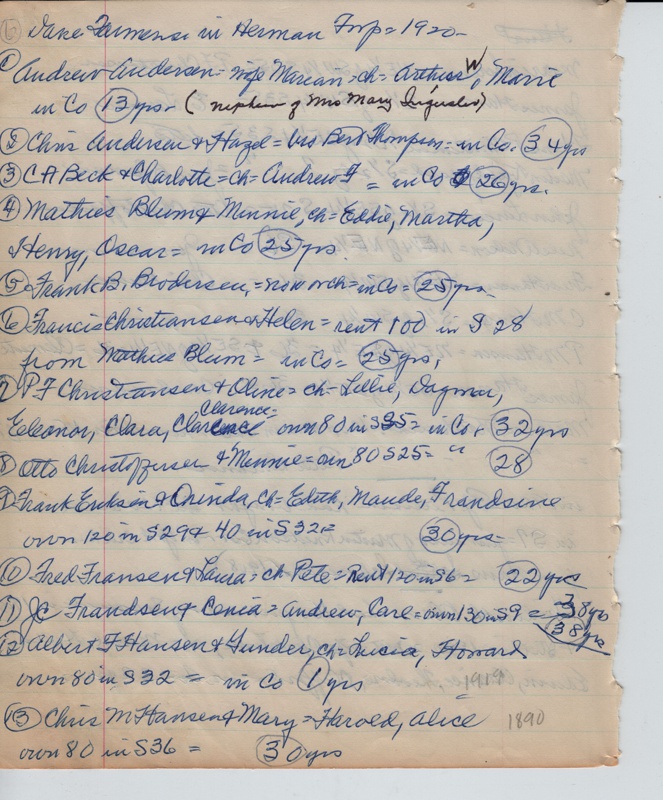 Jake in Herman Twp = 1920 -
① Andrew Andersen = wife Marean = ch = Arthur W, Marie
in Co 13 yrs - (nephew of Mrs Mary)
② Chris Andersen & Hazel = bro Bert Thompson = in Co. 34 yrs
③ CA Beck & Charlotte = ch = Andrew F = in Co 26 yrs.
④ Mathies Blum & Minnie, ch = Eddie, Martha,
Henry, Oscar = in Co 25 yrs.
⑤ Frank B. Brodersen, = no w or ch = in Co = 25 yrs -
⑥ Francis Christiansen & Helen = rent 100 in S 28
from Mathies Blum = in Co = 25 yrs,
7 P F Christiansen & Oline = ch = Lillie, Dagmar,
Eleonor, Clara, Clarence Clarence = own 80 in S35 = in Co = 32 yrs
8 Otto Christoffersen & Minnie = own 80 S25 = " 28
9 Frank Erksen & Orinda, ch = Edith, Maude, Frandsine
own 120 in S29 & 40 in S32 = 30 yrs -
⑩ Fred Fransen & Laura = ch Pete = Rent 120 in S6 = 22 yrs
⑪ JC Frandsen & Cenia = Andrew, Carl = own 130 in S9 = 38 yrs
38 yrs
12 Albert F Hansen & Gunder, ch = Lucia, Howard
own 80 in S32 = in Co 1 yrs 1919
⑬ Chris M Hansen & Mary = Harold, Alice 1890
own 80 in S36 = 30 yrs